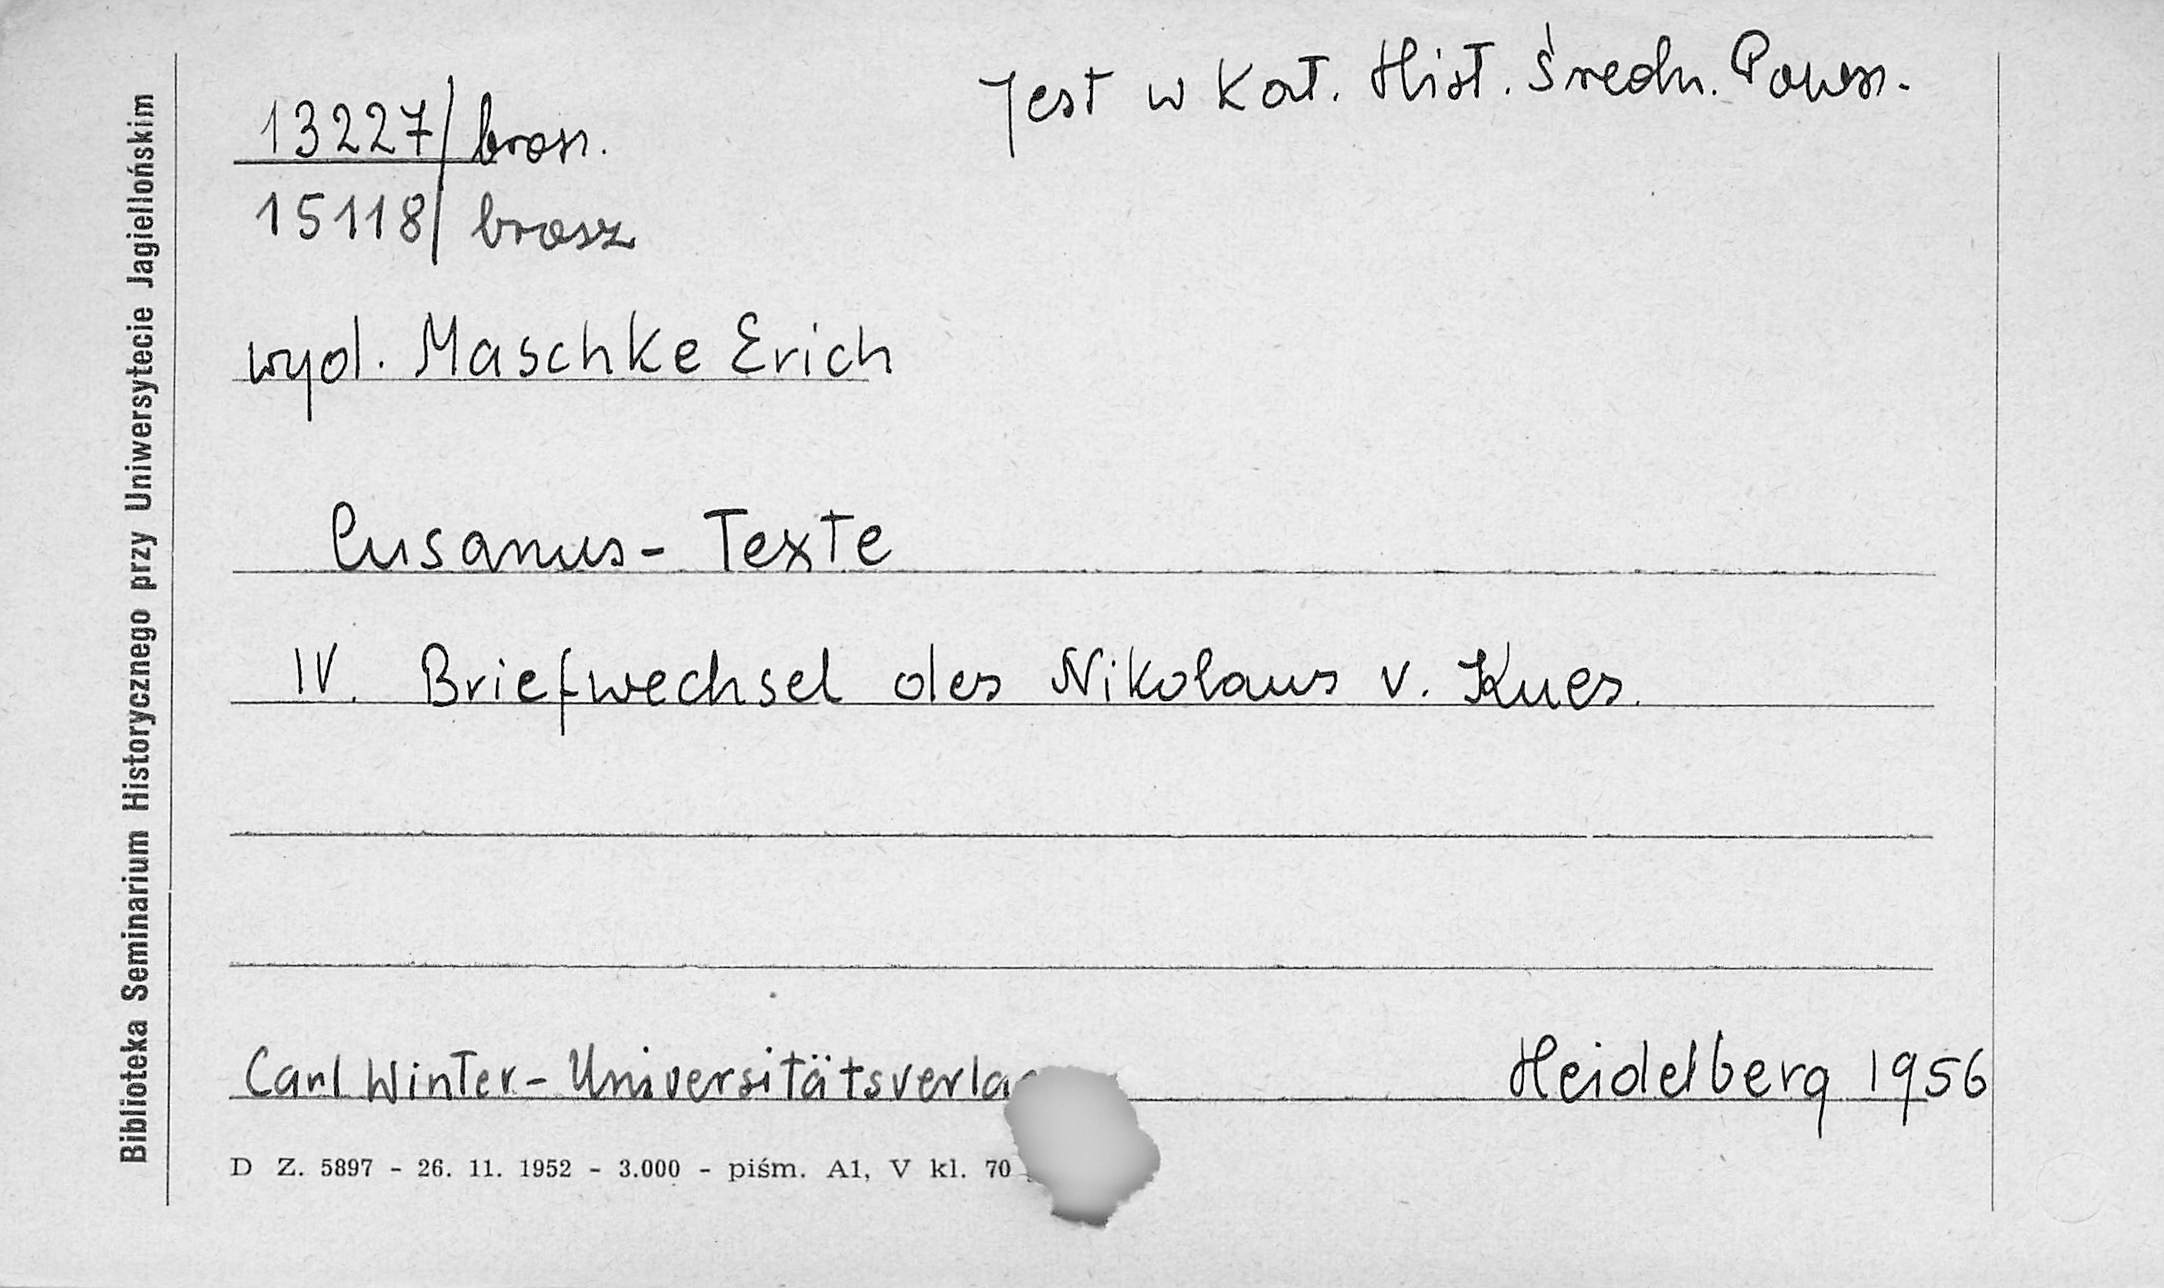 Jest w Kat. Hist. Średn. Powsz.
13227/brosz.
15118/brosz
wyd. Maschke Erich
Cusanus-Texte
IV. Briefwechsel des Nikolaus v. Kues.
Carl Winter-Universitätsverlag Heidelberg 1956
D Z. 5897 - 26. 11. 1952 - 3.000 - piśm. A1, V kl. 70
Biblioteka Seminarium Historycznego przy Uniwersytecie Jagiellońskim